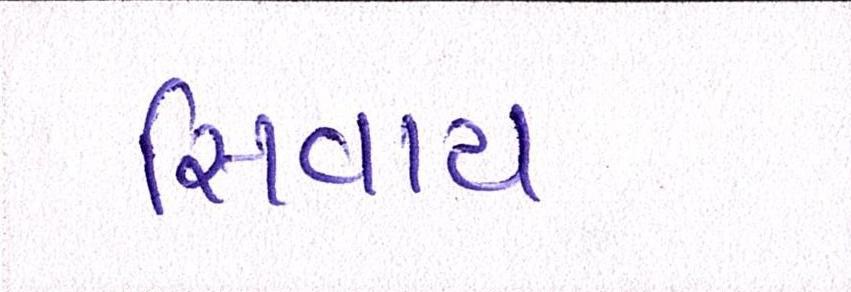 સિવાય